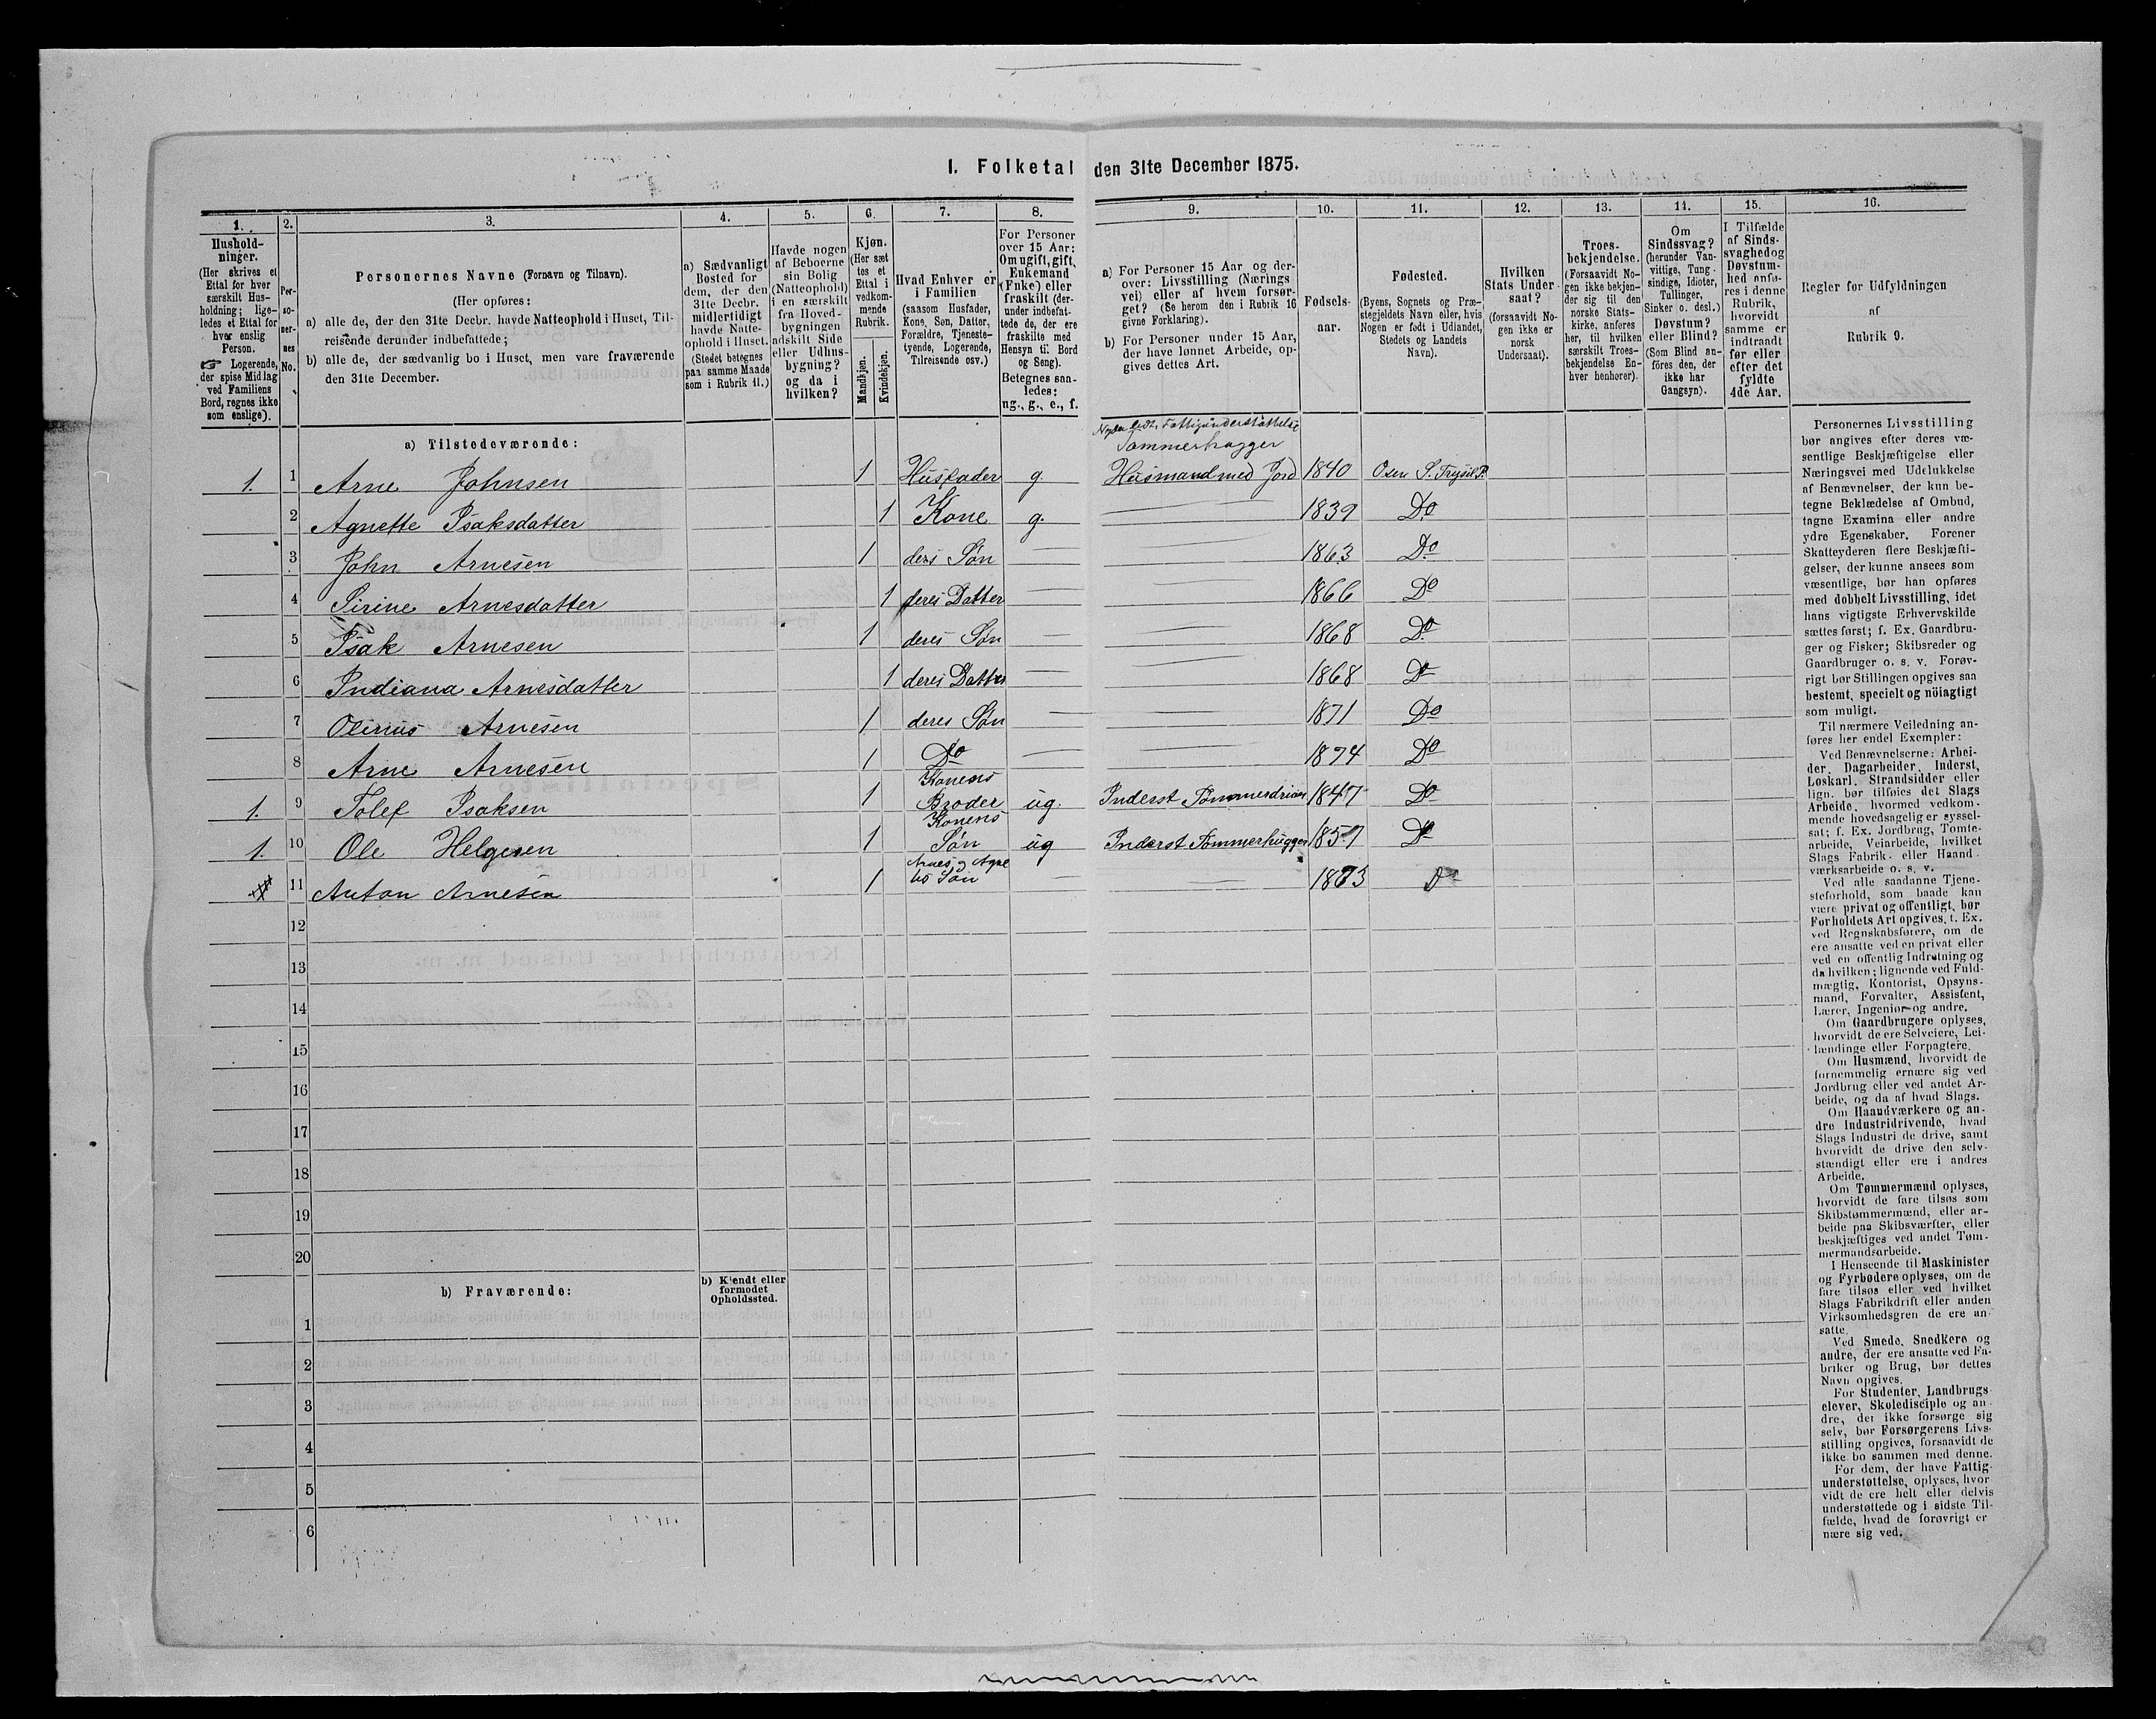 I. Folketal den 31te December 1875.
1. 2. 3. 4. 5. 6. 7. 8. 9. 10. 11. 12. 13. 14. 15. 16.
Hushold-
ninger.
(Her skrives et
Ettal for hver
særskilt Hus-
holdning; lige-
ledes et Ettal for
hver enslig
Person.
☞ Logerende,
der spise Middag
ved Familiens
Bord, regnes ikke
som enslige).
Per-
so-
ner-
nes
No.
Personernes Navne (Fornavn og Tilnavn).
(Her opføres:
a) alle de, der den 31te Decbr. havde Natteophold i Huset, Til-
reisende derunder indbefattede;
b) alle de, der sædvanlig bo i Huset, men vare fraværende
den 31te December.
a) Sædvanligt
Bosted for
dem, der den
31te Decbr.
midlertidigt
havde Natte-
ophold i Huset.
(Stedet betegnes
paa samme Maade
som i Rubrik 11.)
Havde nogen
af Beboerne
sin Bolig
(Natteophold)
i en særskilt
fra Hoved-
bygningen
adskilt Side
eller Udhus-
bygning?
og da i
hvilken?
Kjøn.
(Her sæt
tes et
Ettal i
vedkom-
mende
Rubrik.
Mandkjøn.
Kvindekjøn.
Hvad Enhver er
i Familien
(saasom Husfader,
Kone, Søn, Datter,
Forældre, Tjeneste-
tyende, Logerende,
Tilreisende osv.)
For Personer
over 15 Aar:
Om ugift, gift,
Enkemand
(Enke) eller
fraskilt (der-
under indbefat-
tede de, der ere
fraskilte med
Hensyn til Bord
og Seng).
Betegnes saa-
ledes:
ug., g., e., f.
a) For Personer 15 Aar og der-
over: Livsstilling (Nærings
vei) eller af hvem forsør-
get? (Se herom den i Rubrik 16
givne Forklaring).
b) For Personer under 15 Aar,
der have lønnet Arbeide, op-
gives dettes Art.
Fødsels-
aar.
Fødested.
(Byens, Sognets og Præ-
stegjeldets Navn eller, hvis
Nogen er født i Udlandet,
Stedets og Landets
Navn).
Hvilken
Stats Under-
saat?
(forsaavidt No-
gen ikke er
norsk
Undersaat).
Troes-
bekjendelse.
(Forsaavidt No-
gen ikke bekjen-
der sig til den
norske Stats-
kirke, anføres
her, til hvilken
særskilt Troes-
bekjendelse En-
hver henhører).
Om
Sindssvag?
(herunder Van-
vittige, Tung-
sindige, Idioter,
Tullinger,
Sinker o. desl.)
Døvstum?
eller Blind?
(Som Blind an-
føres den, der
ikke har
Gangsyn).
I Tilfælde
af Sinds-
svaghed og
Døvstum-
hed anfø-
res i denne
Rubrik,
hvorvidt
samme er
indtraadt
før eller
efter det
fyldte
4de Aar.
Regler for Udfyldningen
af
Rubrik 9.
a) Tilstedeværende:
Fattigunderstøttelse
Tømmerhugger
1. 1 Arne Johnsen 1 Husfader g. Husmand med Jord 1840 Osen S. Trysil P.
2 Agnette Isaksdatter 1 Kone g. — 1839 Do
3 John Arnesen 1 deres Søn — — 1863 Do
4 Sirine Arnesdatter 1 deres Datter — — 1866 Do
5 Isak Arnesen 1 deres Søn — — 1868 Do
6 Indiana Arnesdatter 1 deres Datter — — 1868 Do
7 Olinus Arnesen 1 deres Søn — — 1871 Do
8 Arne Arnesen 1 Do — — 1874 Do
Konens
1. 9 Tolef Isaksen 1 Broder ug. Inderst Tømmerdriver 1847 Do
Konens
1. 10 Ole Helgesen 1 Søn ug Inderst Tømmerhugger 1857 Do
Arnes og Agne
11 Anton Arnesen 1 tes Søn — — 1873 Do
12
13
14
15
16
17
18
19
20
b) Fraværende:
b) Kjendt eller
formodet
Opholdssted.
1
2
3
4
5
6
Personernes Livsstilling
bør angives efter deres væ-
sentlige Beskjæftigelse eller
Næringsvei med Udelukkelse
af Benævnelser, der kun be-
tegne Beklædelse af Ombud,
tagne Examina eller andre
ydre Egenskaber. Forener
Skatteyderen flere Beskjæfti-
gelser, der kunne ansees som
væsentlige, bør han opføres
med dobbelt Livsstilling, idet
hans vigtigste Erhvervskilde
sættes først; f. Ex. Gaardbru-
ger og Fisker; Skibsreder og
Gaardbruger o. s. v. Forøv-
rigt bør Stillingen opgives saa
bestemt, specielt og nöiagtigt
som muligt.
Til nærmere Veiledning an-
føres her endel Exempler:
Ved Benævnelserne: Arbei-
der, Dagarbeider, Inderst,
Løskarl, Strandsidder eller
lign. bør tilføies det Slags
Arbeide, hvormed vedkom-
mende hovedsagelig er syssel-
sat; f. Ex. Jordbrug, Tomte-
arbeide, Veiarbeide, hvilket
Slags Fabrik- eller Haand-
værksarbeide o. s. v.
Ved alle saadanne Tjene-
steforhold, som baade kan
være privat og offentligt, bør
Forholdets Art opgives, t. Ex.
ved Regnskabsførere, om de
ere ansatte ved en privat eller
ved en offentlig Indretning og
da hvilken; lignende ved Fuld-
mægtig, Kontorist, Opsyns-
mand, Forvalter, Assistent,
Lærer, Ingeniør og andre.
Om Gaardbrugere oplyses,
hvorvidt de ere Selveiere, Lei-
lændinge eller Forpagtere.
Om Husmænd, hvorvidt de
fornemmelig ernære sig ved
Jordbrug eller ved andet Ar-
beide, og da af hvad Slags.
Om Haandværkere og an-
dre Industridrivende, hvad
Slags Industri de drive, samt
hvorvidt de drive den selv-
stændigt eller ere i andres
Arbeide.
Om Tømmermænd oplyses,
hvorvidt de fare tilsøs som
Skibstømmermænd, eller ar-
beide paa Skibsværfter, eller
beskjæftiges ved andet Tøm-
mermandsarbeide.
I Henseende til Maskinister
og Fyrbødere oplyses, om de
fare tilsøs eller ved hvilket
Slags Fabrikdrift eller anden
Virksomhedsgren de ere an-
satte.
Ved Smede, Snedkere og
andre, der ere ansatte ved Fa-
briker og Brug, bør dettes
Navn opgives.
For Studenter, Landbrugs-
elever, Skoledisciple og an-
dre, der ikke forsørge sig
selv, bør Forsørgerens Livs-
stilling opgives, forsaavidt de
ikke bo sammen med denne.
For dem, der have Fattig-
understøttelse, oplyses, hvor-
vidt de ere helt eller delvis
understøttede og i sidste Til-
fælde, hvad de forøvrigt er
nære sig ved.